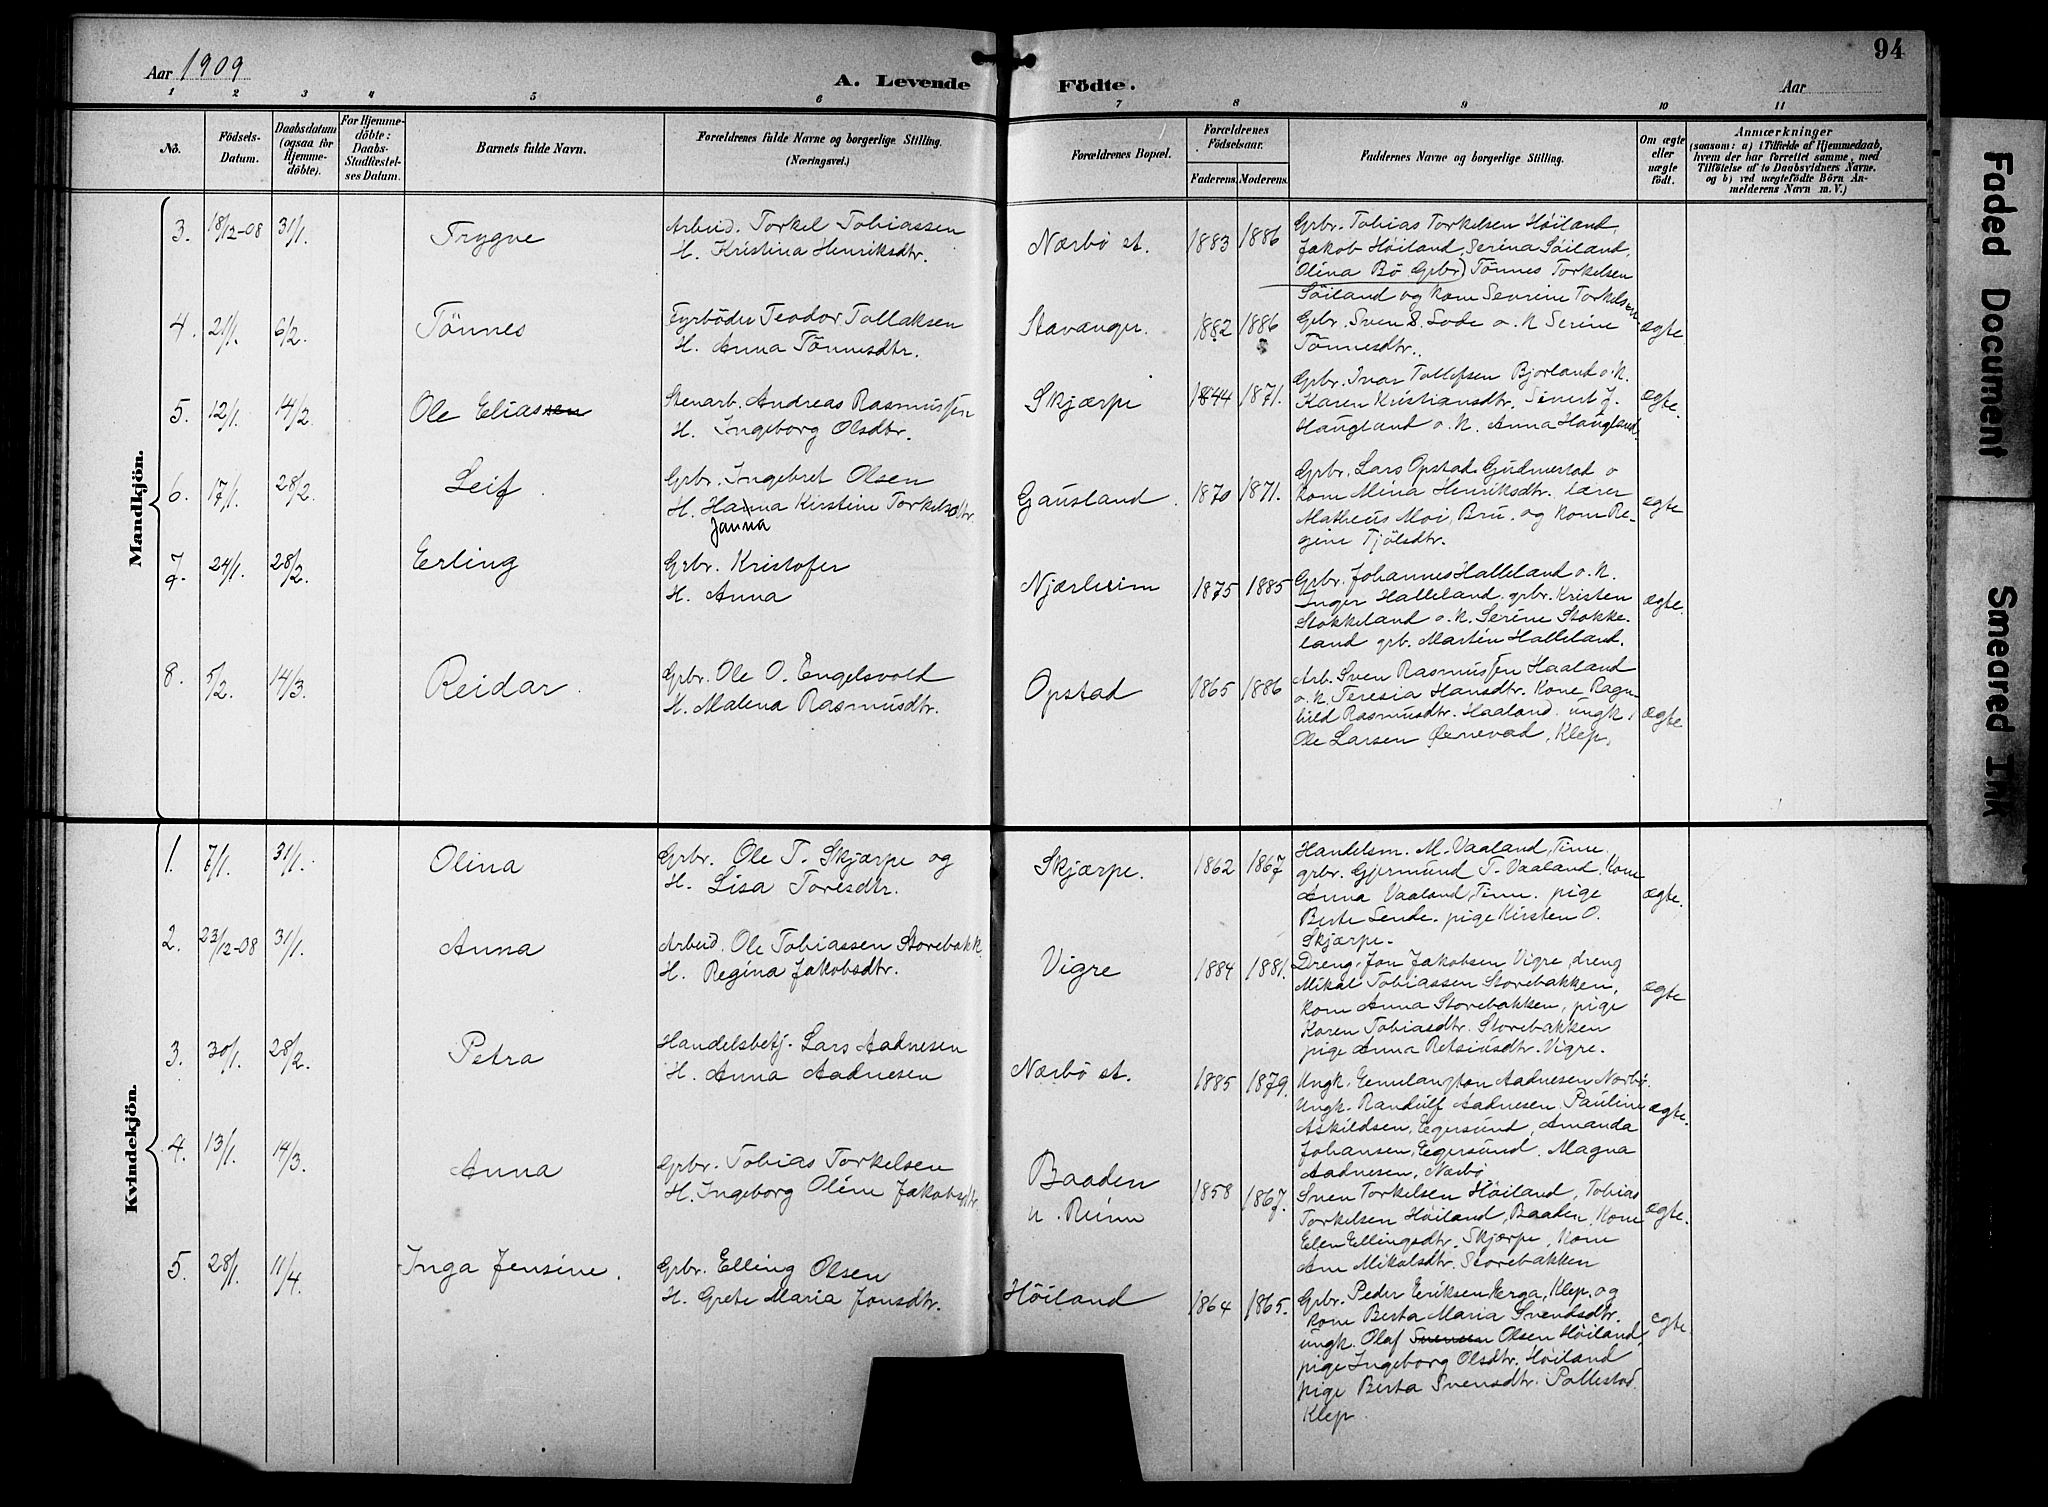 Aar 1909
A. Levende Födte.
Aar
94
1 2 3 4 5 6 7 8 9 10 11
No.
Födsels-
Datum.
Daabsdatum
(ogsaa for
Hjemme-
döbte).
For Hjemme-
döbte:
Daabs-
Stadfæstel-
ses Datum.
Barnets fulde Navn.
Forældrenes fulde Navne og borgerlige Stilling.
(Næringsvei.)
Forældrenes Bopæl.
Forældrenes
Födselsaar.
Faderens. Moderens.
Faddernes Navne og borgerlige Stilling.
Om ægte
eller
uægte
født.
Anmærkninger
(saasom: a) i Tilfælde af Hjemmedaab,
hvem der har forrettet samme, med
Tilføielse af to Daabsvidners Navne.
og b) ved uægtefödte Börn An-
melderens Navn m. V.)
Mandkjön.
3. 18/12-08 31/1. Trygve
Arbeid. Torkel Tobiassen
H. Kristina Henriksdtr.
Nærbö st. 1883 1886
Grbr. Tobias Torkelsen Höiland,
Jakob Höiland, Serina Söiland,
Olina Bö Grbr) Tönnes Torkelsen
Söiland og kone Sevrine Torkelsen
4. 21/1. 6/2. Tönnes
Fyrböder Teodor Tollaksen
H. Anna Tönnesdtr.
Stavanger. 1882 1886
Grbr. Sven S. Lode o. k Serine
Tönnesdtr.
ægte
5. 12/1. 14/2 Ole Eliassen
Stenarb. Andreas Rasmussen
H. Ingeborg Olsdtr.
Skjærpe 1844 1871.
Grbr. Ivar Tollefsen Bjorland o. k.
Karen Kristiansdtr. Sivert J.
Haugland o. k. Anna Haugland.
ægte.
6. 17/1. 28/2. Leif.
Grbr. Ingebret Olsen
H. Hanna Kirstine Torkelsdtr.
Janna
Gausland. 1870 1871.
Grbr. Lars Opstad Gudmestad o
kone Mina Henriksdtr. lærer
Matheus Moi, Bru. og kone Re-
gine Tjölsdtr.
ægte
7 24/1. 28/2. Erling
9.
Grbr. Kristofer
H. Anna
Njærheim 1875 1885
Grbr. Johannes Halleland o. k.
Inger Halleland. grbr. Kristen
Stokkeland o. k. Serine Stokke-
land grb. Martin Halleland.
ægte.
8. 5/2. 14/3. Reidar.
Grbr. Ole O. Engelsvold
H. Malena Rasmusdtr.
Opstad 1865 1886
Arb. Sven Rasmussen Haaland
o. k. Teresia Hansdtr. Kone Ragn-
hild Rasmusdtr. Haaland. ungk.
Ole Larsen Örnevad, Klep.
ægte
Kvindekjön.
1. 7/1. 31/1. Olina
Grbr. Ole T. Skjærpe og
H. Lisa Toresdtr.
Skjærpe. 1862 1867
Handelsm. M. Vaaland, Time.
grbr. Gjermund T. Vaaland, Kone
Anna Vaaland, Time. pige
Berte Lende. pige Kirsten O.
Skjærpe.
ægte.
2. 23/12-08 31/1. Anna
Arbeid. Ole Tobiassen Storebakk.
H. Regina Jakobsdtr.
Vigre 1884 1881.
Dreng. Jon Jakobsen Vigre, dreng
Mikal Tobiassen Storebakken,
kone Anna Storebakken, pige
Karen Tobiasdtr. Storebakken
pige Anna Retsiusdtr. Vigre.
ægte
3. 30/1. 28/2. Petra
Handelsbetj. Lars Aadnesen
H. Anna Aadnesen
Nærbö st. 1885 1879.
Ungk. Aadnesen Nærbö.
Ungk. Randulf Aadnesen, Pauline
Askildsen, Egersund, Amanda
Johansen, Egersund, Magna
Aadnesen, Nærbö
ægte.
4. 13/1. 14/3. Anna
Grbr. Tobias Torkelsen
H. Ingeborg Oline Jakobsdtr.
Baaden
u. Reime
1858 1867.
Sven Torkelsen Höiland, Tobias
Torkelsen Höiland, Baaden, Kone
Elen Ellingsdtr. Skjærpe, Kone
Ane Mikalsdtr. Storebakken
ægte.
5. 28/1. 11/4. Inga Jensine.
Grbr. Elling Olsen
H. Grete Maria Jonsdtr.
Höiland 1864 1865.
Grbr. Peder Eriksen Herga, Klep, og
kone Berta Maria Svendsdtr.
ungk. Olaf Svensen Olsen Höiland,
pige Ingeborg Olsdtr. Höiland
pige Berta Svensdtr. Pollestad.
Klep
egte
Faded Document
Smeared Ink